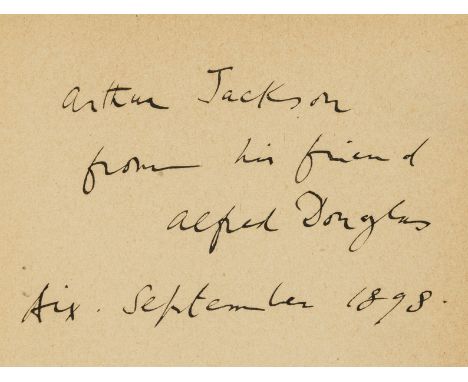 Arthur Jackson
from his friend
Alfred Douglas
Aix. September 1898.